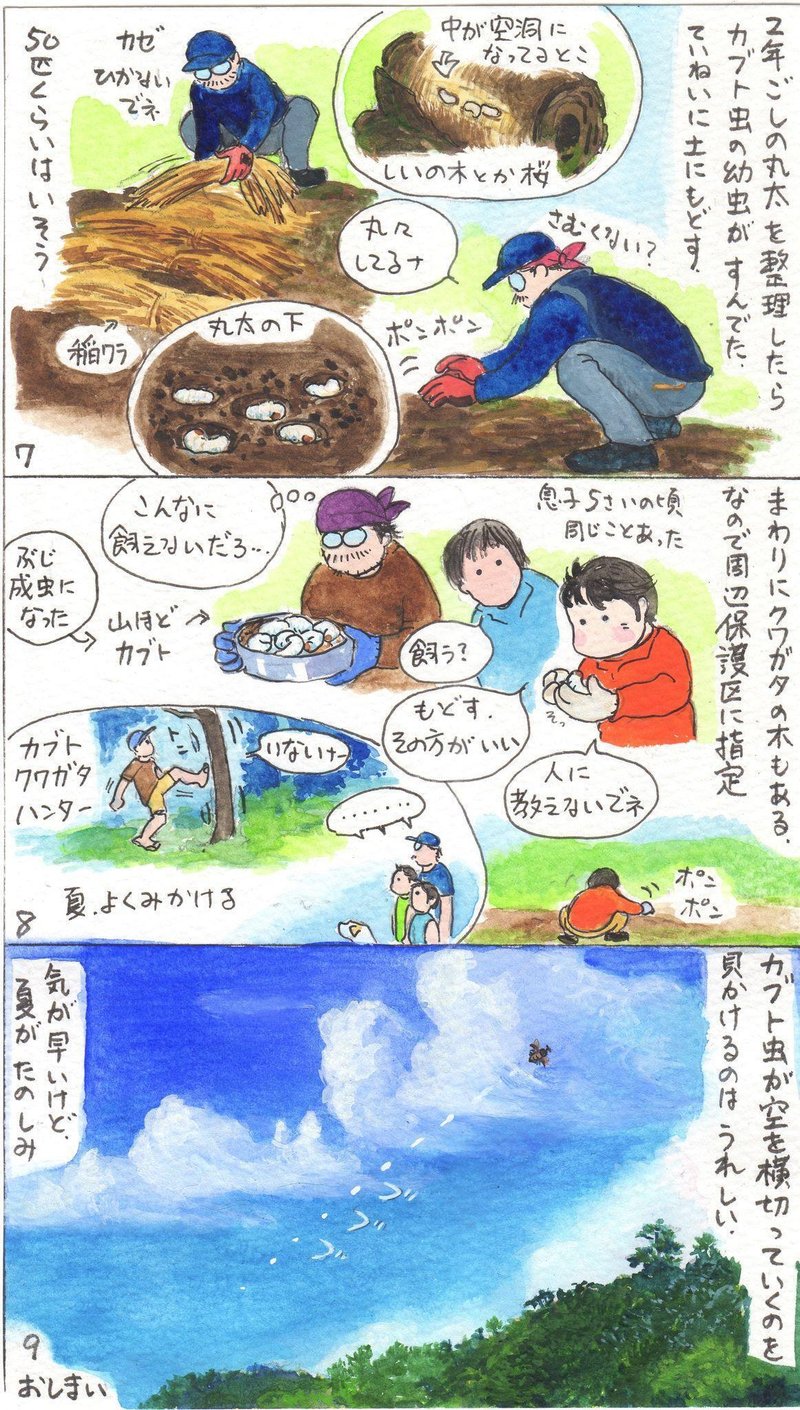 2年ごしの丸太を整理したら
カブト虫の幼虫がすんでた.
ていねいに土にもどす.
中が空洞に
なってるとこ
しいの木とか桜
カゼ
ひかない
でネ
50匹くらいはいそう〜
さむくない?
丸々
してるナ
ポンポン
稲ワラ
丸太の下
7
まわりにクワガタの木もある.
なので周辺保護区に指定
息子5さいの頃
同じことあった
こんなに
飼えないだろ…
ぶじ
成虫に
なった
山ほど
カブト
飼う?
もどす.
その方がいい
そっ
人に
教えないでネ
カブト
クワガタ
ハンター
いないナー
......
夏.よくみかける
ポン
ポン
8
カブト虫が空を横切っていくのを
見かけるのは うれしい.
気が早いけど、
夏が たのしみ
9
おしまい